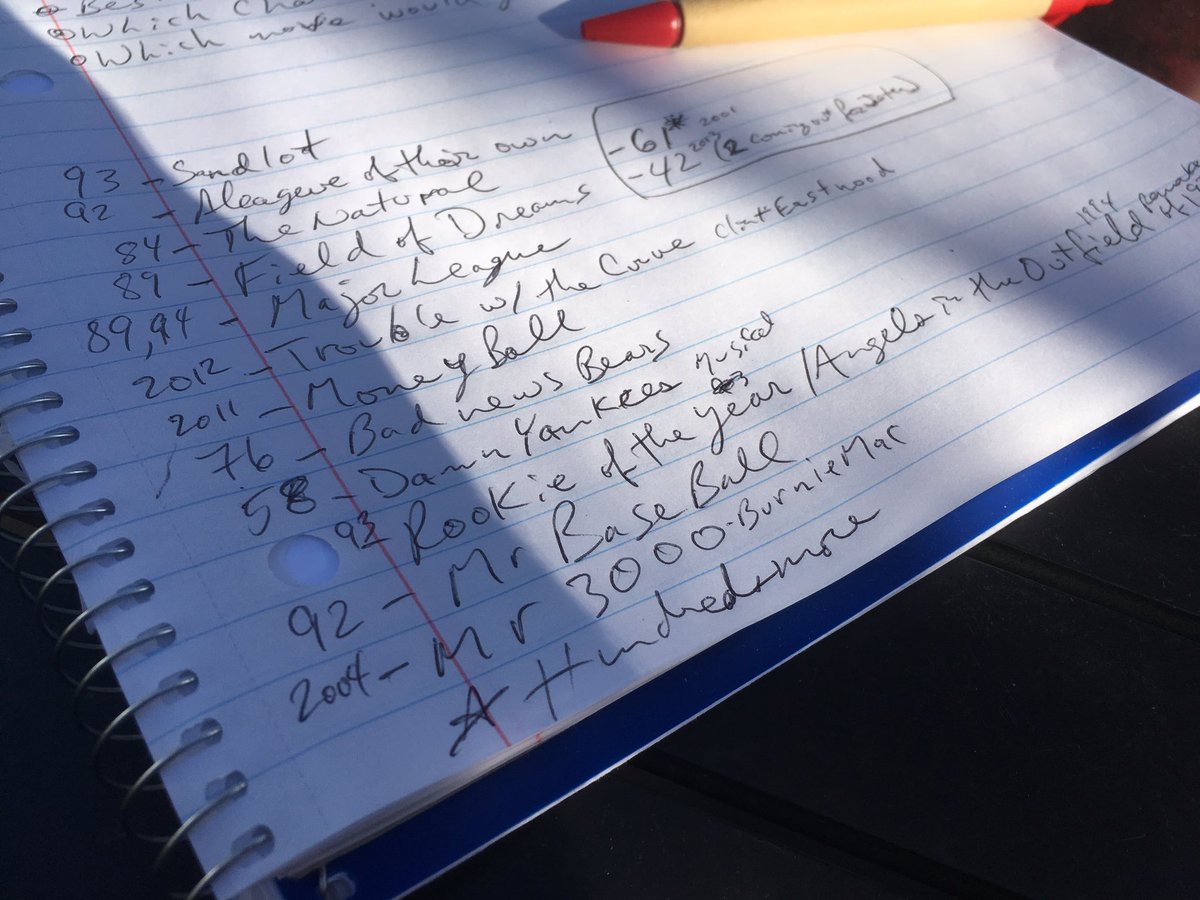 • Bes
• Which Cha
• Which movie would y
-61* 2001
-42 2013 (2 coming out
93 - Sandlot
92 - A league of their own
84 - The Natural
89 - Field of Dreams
89,94 - Major League
2012 - Trouble w/ the Curve Clint Eastwood
2011 - Money Ball
76 - Bad news Bears
58 - Damn Yankees Musical
93 Rookie of the year / Angels in the Outfield 1994
92 - Mr Base Ball
2004 - Mr 3000 - Burnie Mac
☆ Hundreds more